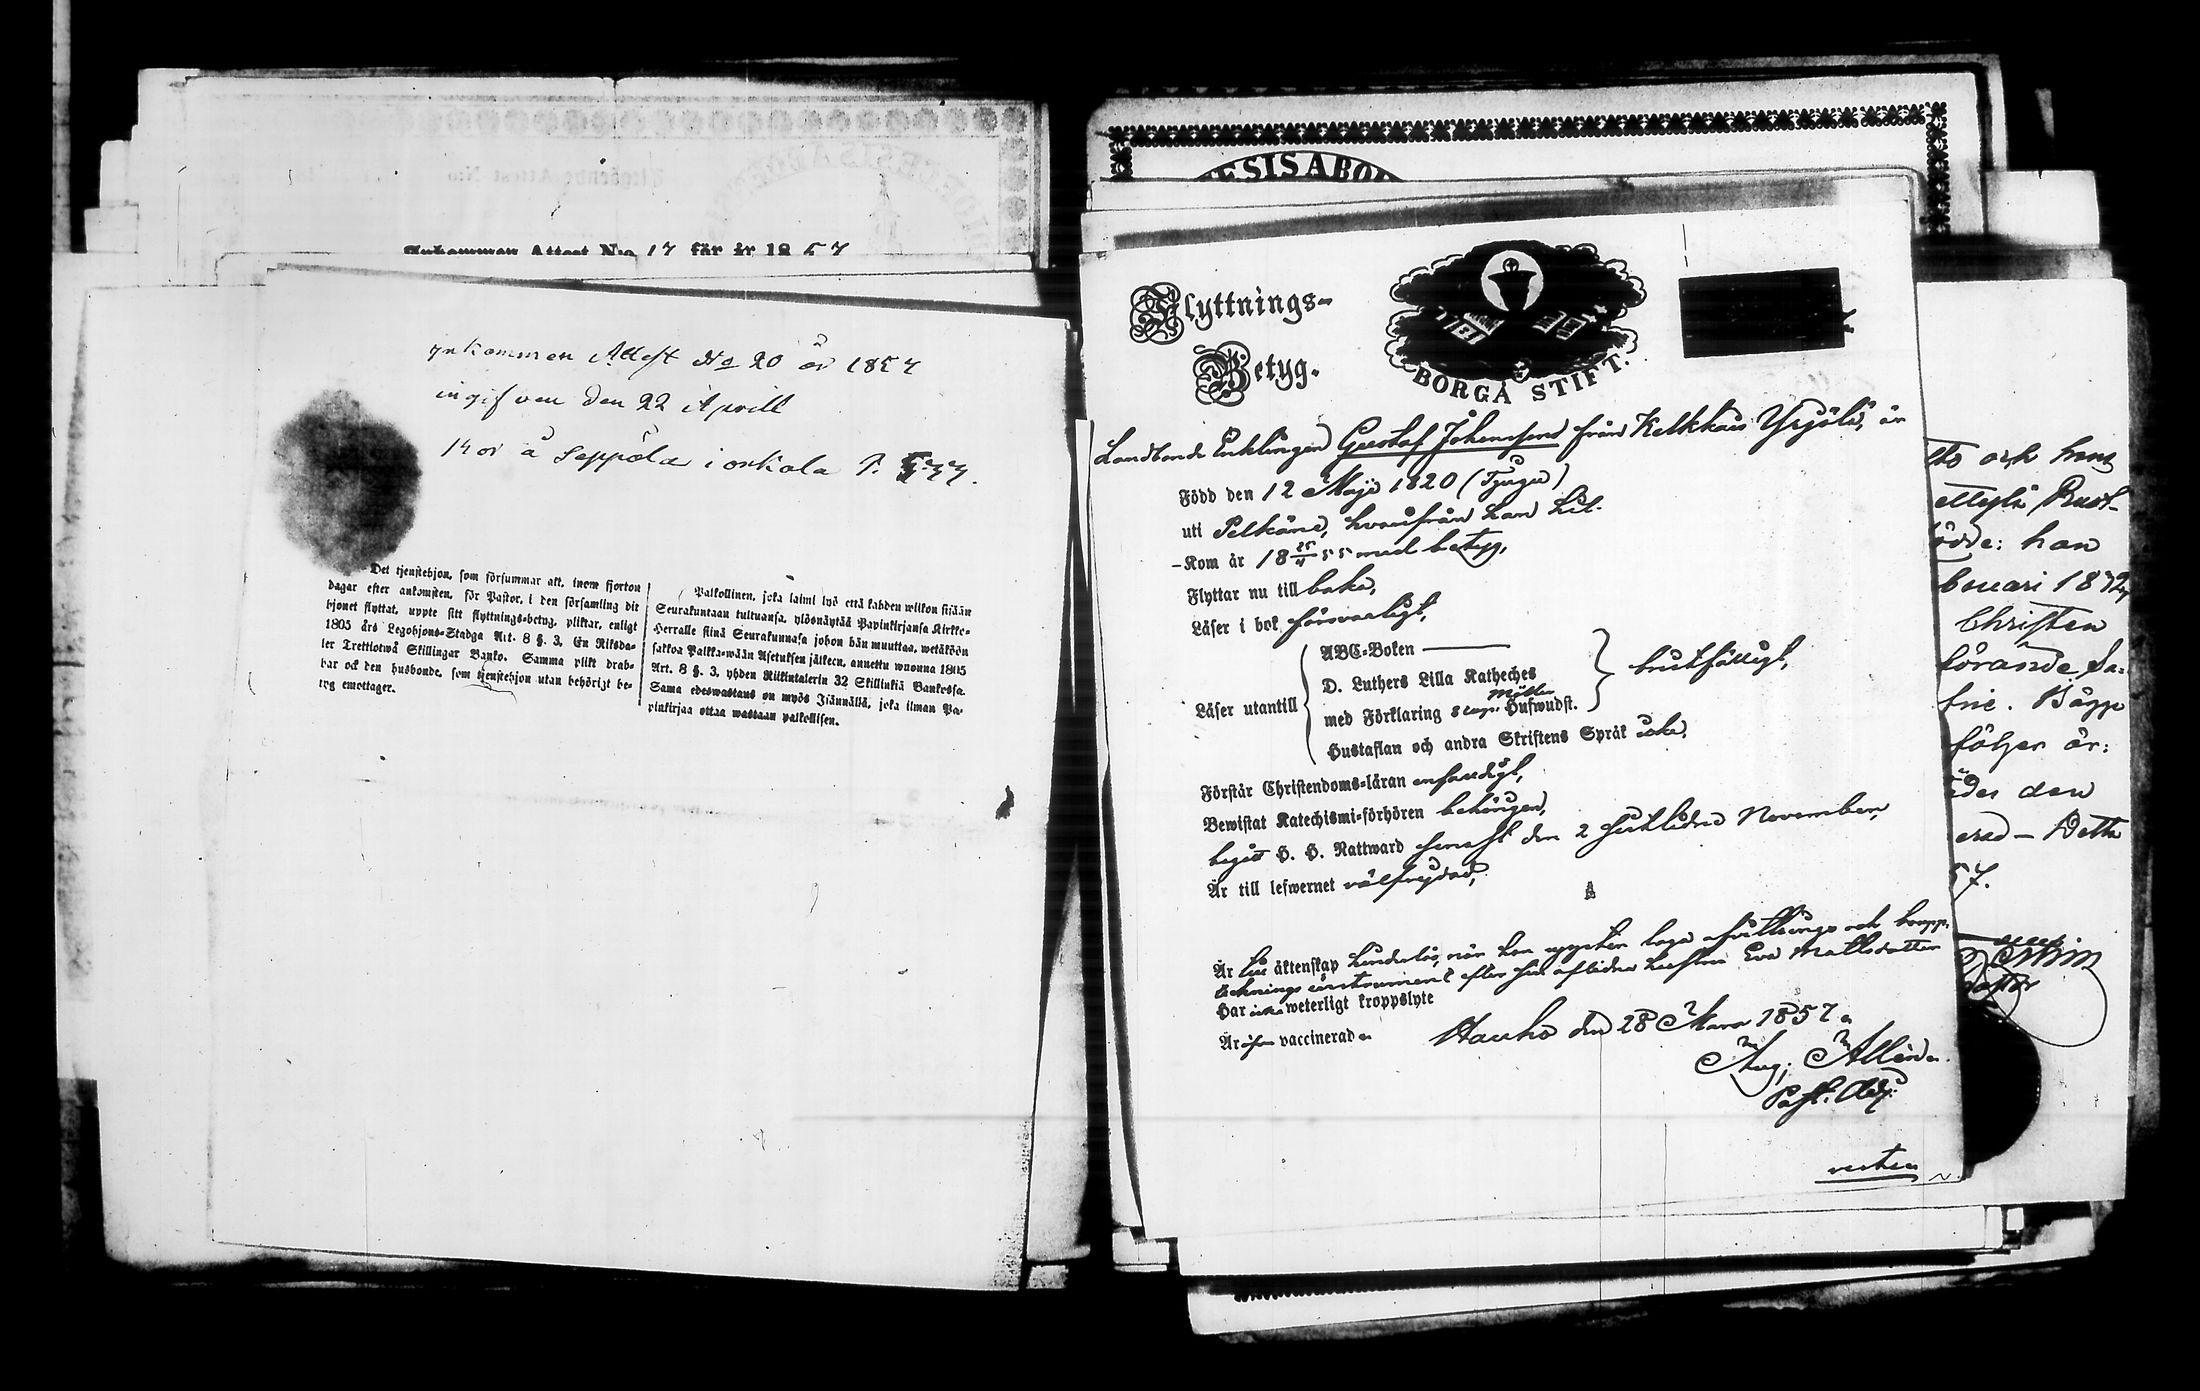 Inkommen Attest N:o 17 för år 1857
Inkommen Attest No 20 år 1857
ingifven den 22 Aprill
Bor å Seppälä i onkala P.
Det tjenstehjon, som försummar att, inom fjorton
dagar efter ankomsten, för Pastor, i den församling dit
hjonet flyttat, uppte sitt flyttnings-betyg, pliktar, enligt
1805 års Legohjons-Stadga Art. 8 §. 3, En Riksda-
ler Trettiotwå Skillingar Banko. Samma plikt drab-
bar ock den husbonde, som tjenstehjon utan behörigt be-
tyg emottager.
Palkollinen, joka laimi lyö että kahden wiikon sisään
Seurakuntaan tultuansa, ylösnäyttää Papinkirjansa Kirkko-
Herralle siinä Seurakunnassa johon hän muuttaa, wetäköön
sakkoa Palkka-wään Asetuksen jälkeen, annettu wuonna 1805
Art. 8 §. 3, yhden Riikintalerin 32 Skillinkiä Bankossa.
Sama edeswastaus on myös Isännällä, joka ilman Pa-
pinkirjaa ottaa wastaan palkollisen.
ESIS ABO
Flyttnings-
Betyg.
BORGÅ STIFT.
Landbonde Enklingen Gustaf Johansson från Kelkkais Yrjölä, är
Född den 12 Maji 1820 (Tjugu)
uti Pelkäne, hvarifrån han hit
-Kom år 18 25/4 55 med betyg,
Flyttar nu till baka,
Läser i bok försvarligt,
ABC-Boken
D. Luthers Lilla Katheches
med Förklaring Hufwudst.
Läser utantill
bristfälligt,
Hustaflan och andra Skriftens Språk icke,
Förstår Christendoms-läran enfaldigt,
Bewistat Katechismi-förhören behörigen,
begått H. H. Nattward senast den 2 sistlidne November,
Är till lefwernet välfrejdad,
Är till äktenskap hinderlös, när han uppster laga afvittrings och boupp-
tecknings instrument efter sin aflidna hustru Eva Mattsdotter
Har icke weterligt kroppslyte
Är vaccinerad
Hauho den 28 Mars 1857.
Aug. Allén
Past. Adj.
vertes
och hans
han
bruari 1872
Christen
följer är:
den
57.